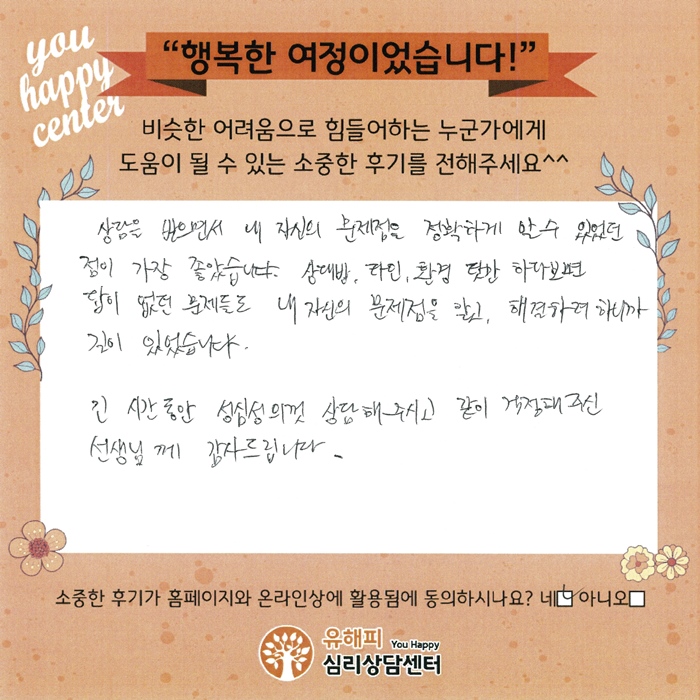 you
happy
center
“행복한 여정이었습니다!”
비슷한 어려움으로 힘들어하는 누군가에게
도움이 될 수 있는 소중한 후기를 전해주세요^^
상담을 받으면서 내 자신의 문제점을 정확하게 알 수 있었던
점이 가장 좋았습니다. 상대방, 타인, 환경 탓만 하다보면
답이 없던 문제들도 내 자신의 문제점을 알고, 해결하려 하니까
길이 있었습니다.
긴 시간동안 성심성의껏 상담해주시고 같이 걱정해주신
선생님께 감사드립니다.
소중한 후기가 홈페이지와 온라인상에 활용됨에 동의하시나요? 네☑ 아니오☐
유해피 You Happy
심리상담센터